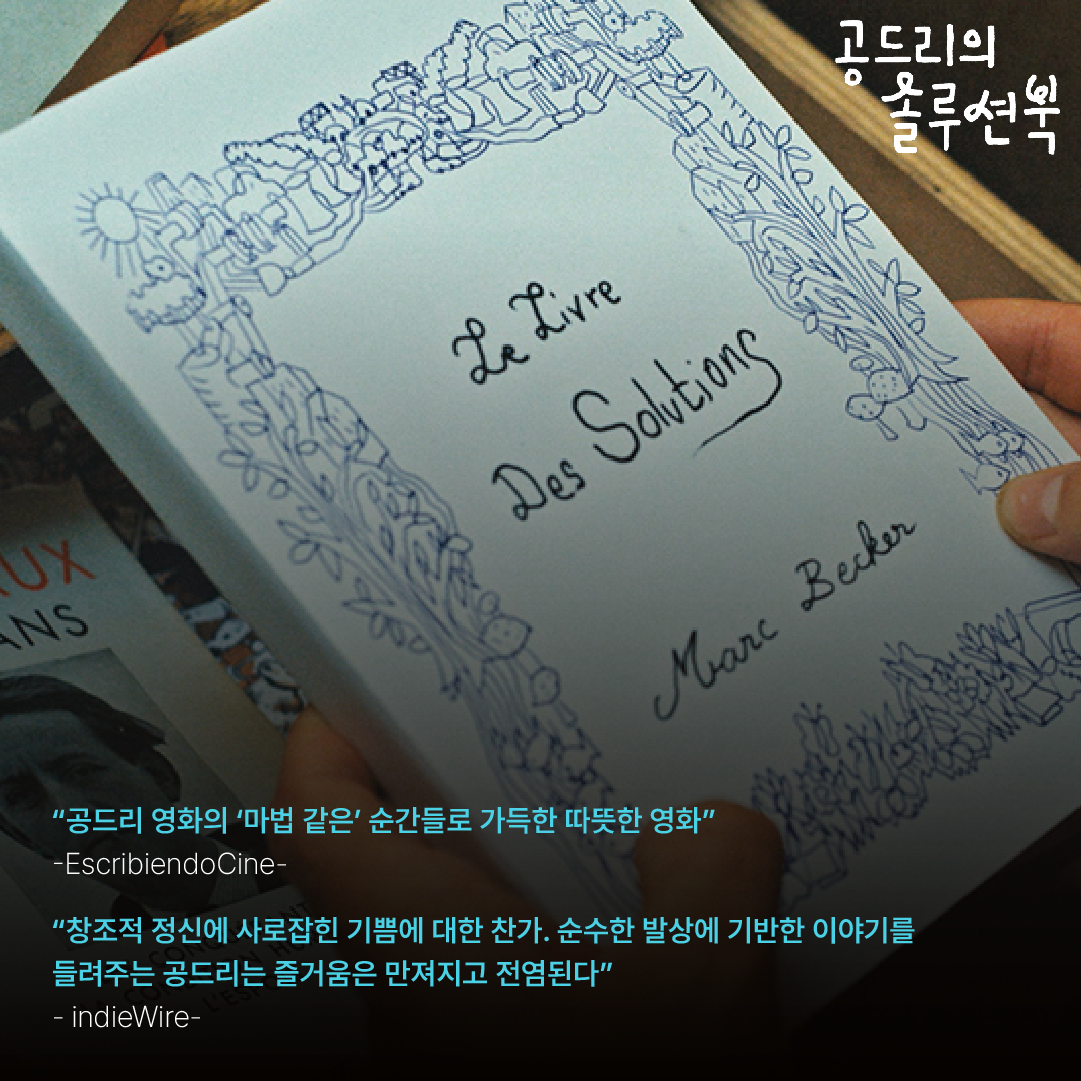 공드리의
솔루션북
Le Livre
Des Solutions
Marc Becker
UX
ANS
“공드리 영화의 ‘마법 같은’ 순간들로 가득한 따뜻한 영화”
-EscribiendoCine-
“창조적 정신에 사로잡힌 기쁨에 대한 찬가. 순수한 발상에 기반한 이야기를
들려주는 공드리는 즐거움은 만져지고 전염된다”
- indieWire-